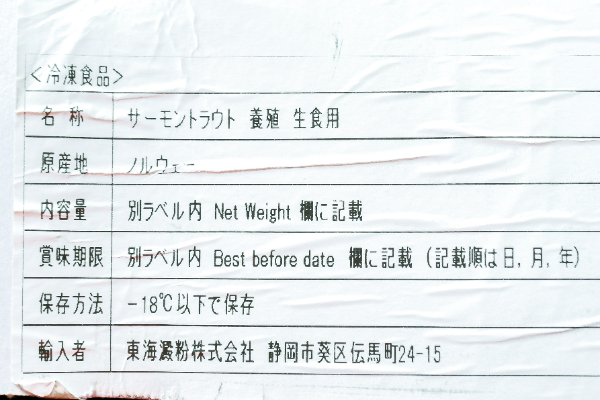 <冷凍食品>
名 称 サーモントラウト 養殖 生食用
原産地 ノルウェー
内容量 別ラベル内 Net Weight 欄に記載
賞味期限 別ラベル内 Best before date 欄に記載 (記載順は日,月,年)
保存方法 -18℃以下で保存
輸入者 東海澱粉株式会社 静岡市葵区伝馬町24-15